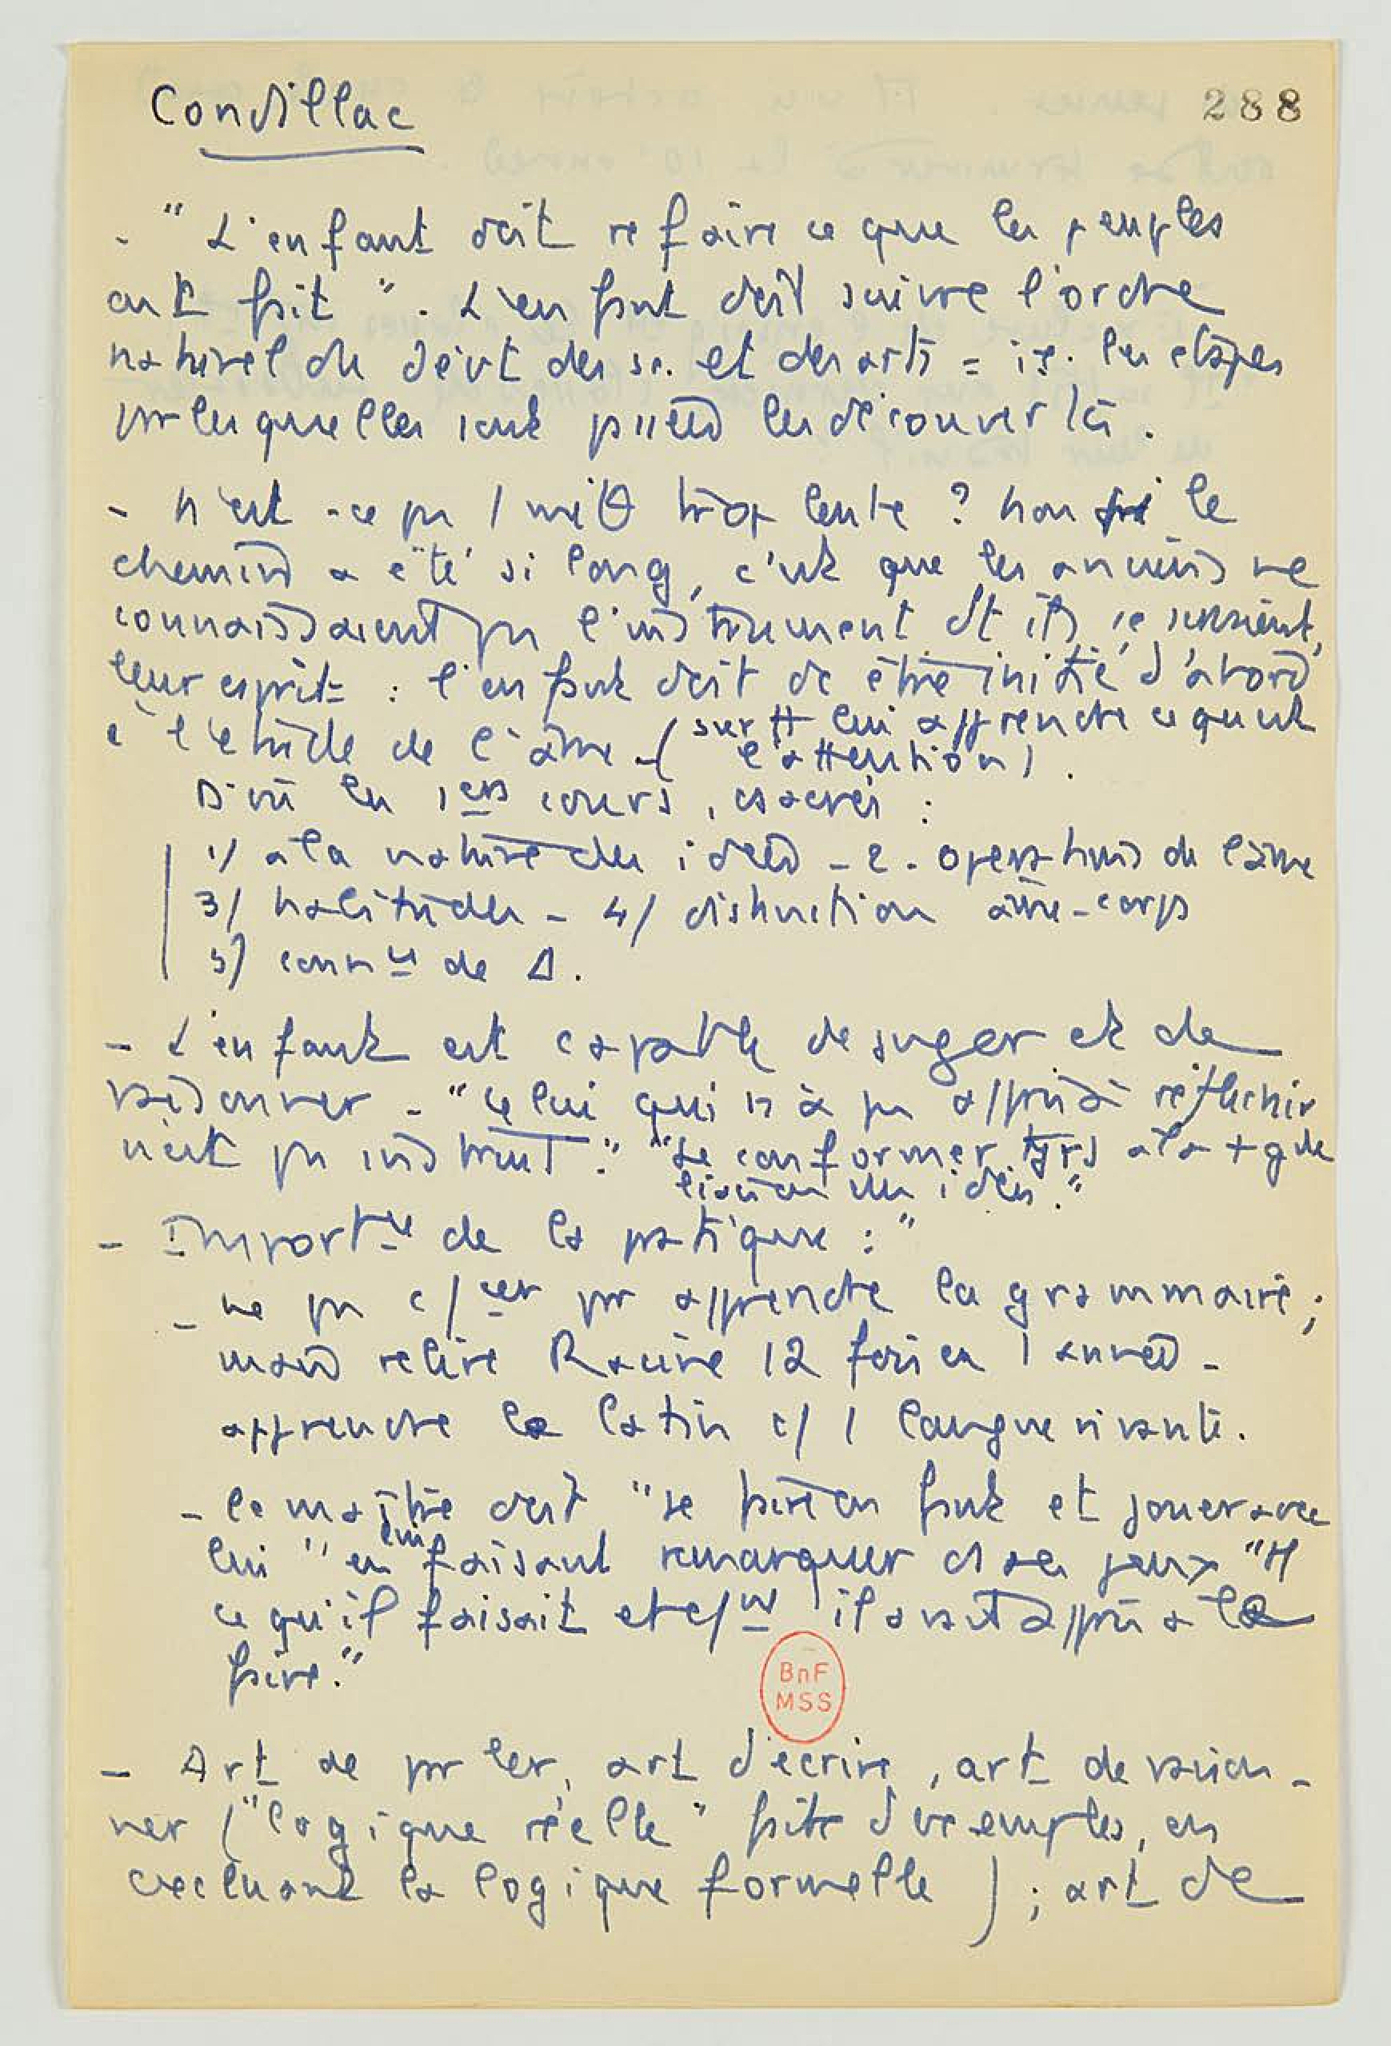 Condillac
288
- "L'enfant doit refaire ce que les peuples
ont fait". L'enfant doit suivre l'ordre
naturel du dévt des sc. et des arts = i.e. les étapes
par lesquelles sont passées les découvertes.
- N'est-ce pas 1 méth trop lente ? Non si le
chemin a été si long, c'est que les anciens ne
connaissaient pas l'instrument dt ils se servaient,
leur esprit : l'enfant doit dc être initié d'abord
à l'étude de l'âme - (surtt lui apprendre ce qu'est
l'attention).
D'où les 1ers cours, csacrés :
1) à la nature des idées - 2 - operations de l'âme
3) habitudes - 4/ distinction âme-corps
5) connce de Δ.
- L'enfant est capable de juger et de
raisonner - "celui qui n'a pas appris à réfléchir
n'est pas instruit." "se conformer tjrs à la + gde
liaison des idées."
- Importce de la pratique :"
- ne pas c/cer par apprendre la grammaire ;
mais relire Racine 12 fois en 1 année -
apprendre le latin c/ 1 langue vivante.
- le maître doit "se faire enfant et jouer avec
lui" en lui faisant remarquer ds ses jeux "tt
ce qu'il faisait et c/nt il avait appris à le
faire."
BnF
MSS
- Art de parler, art d'écrire, art de raison-
ner ("logique réelle" faite d'exemples, en
excluant la logique formelle) ; art de